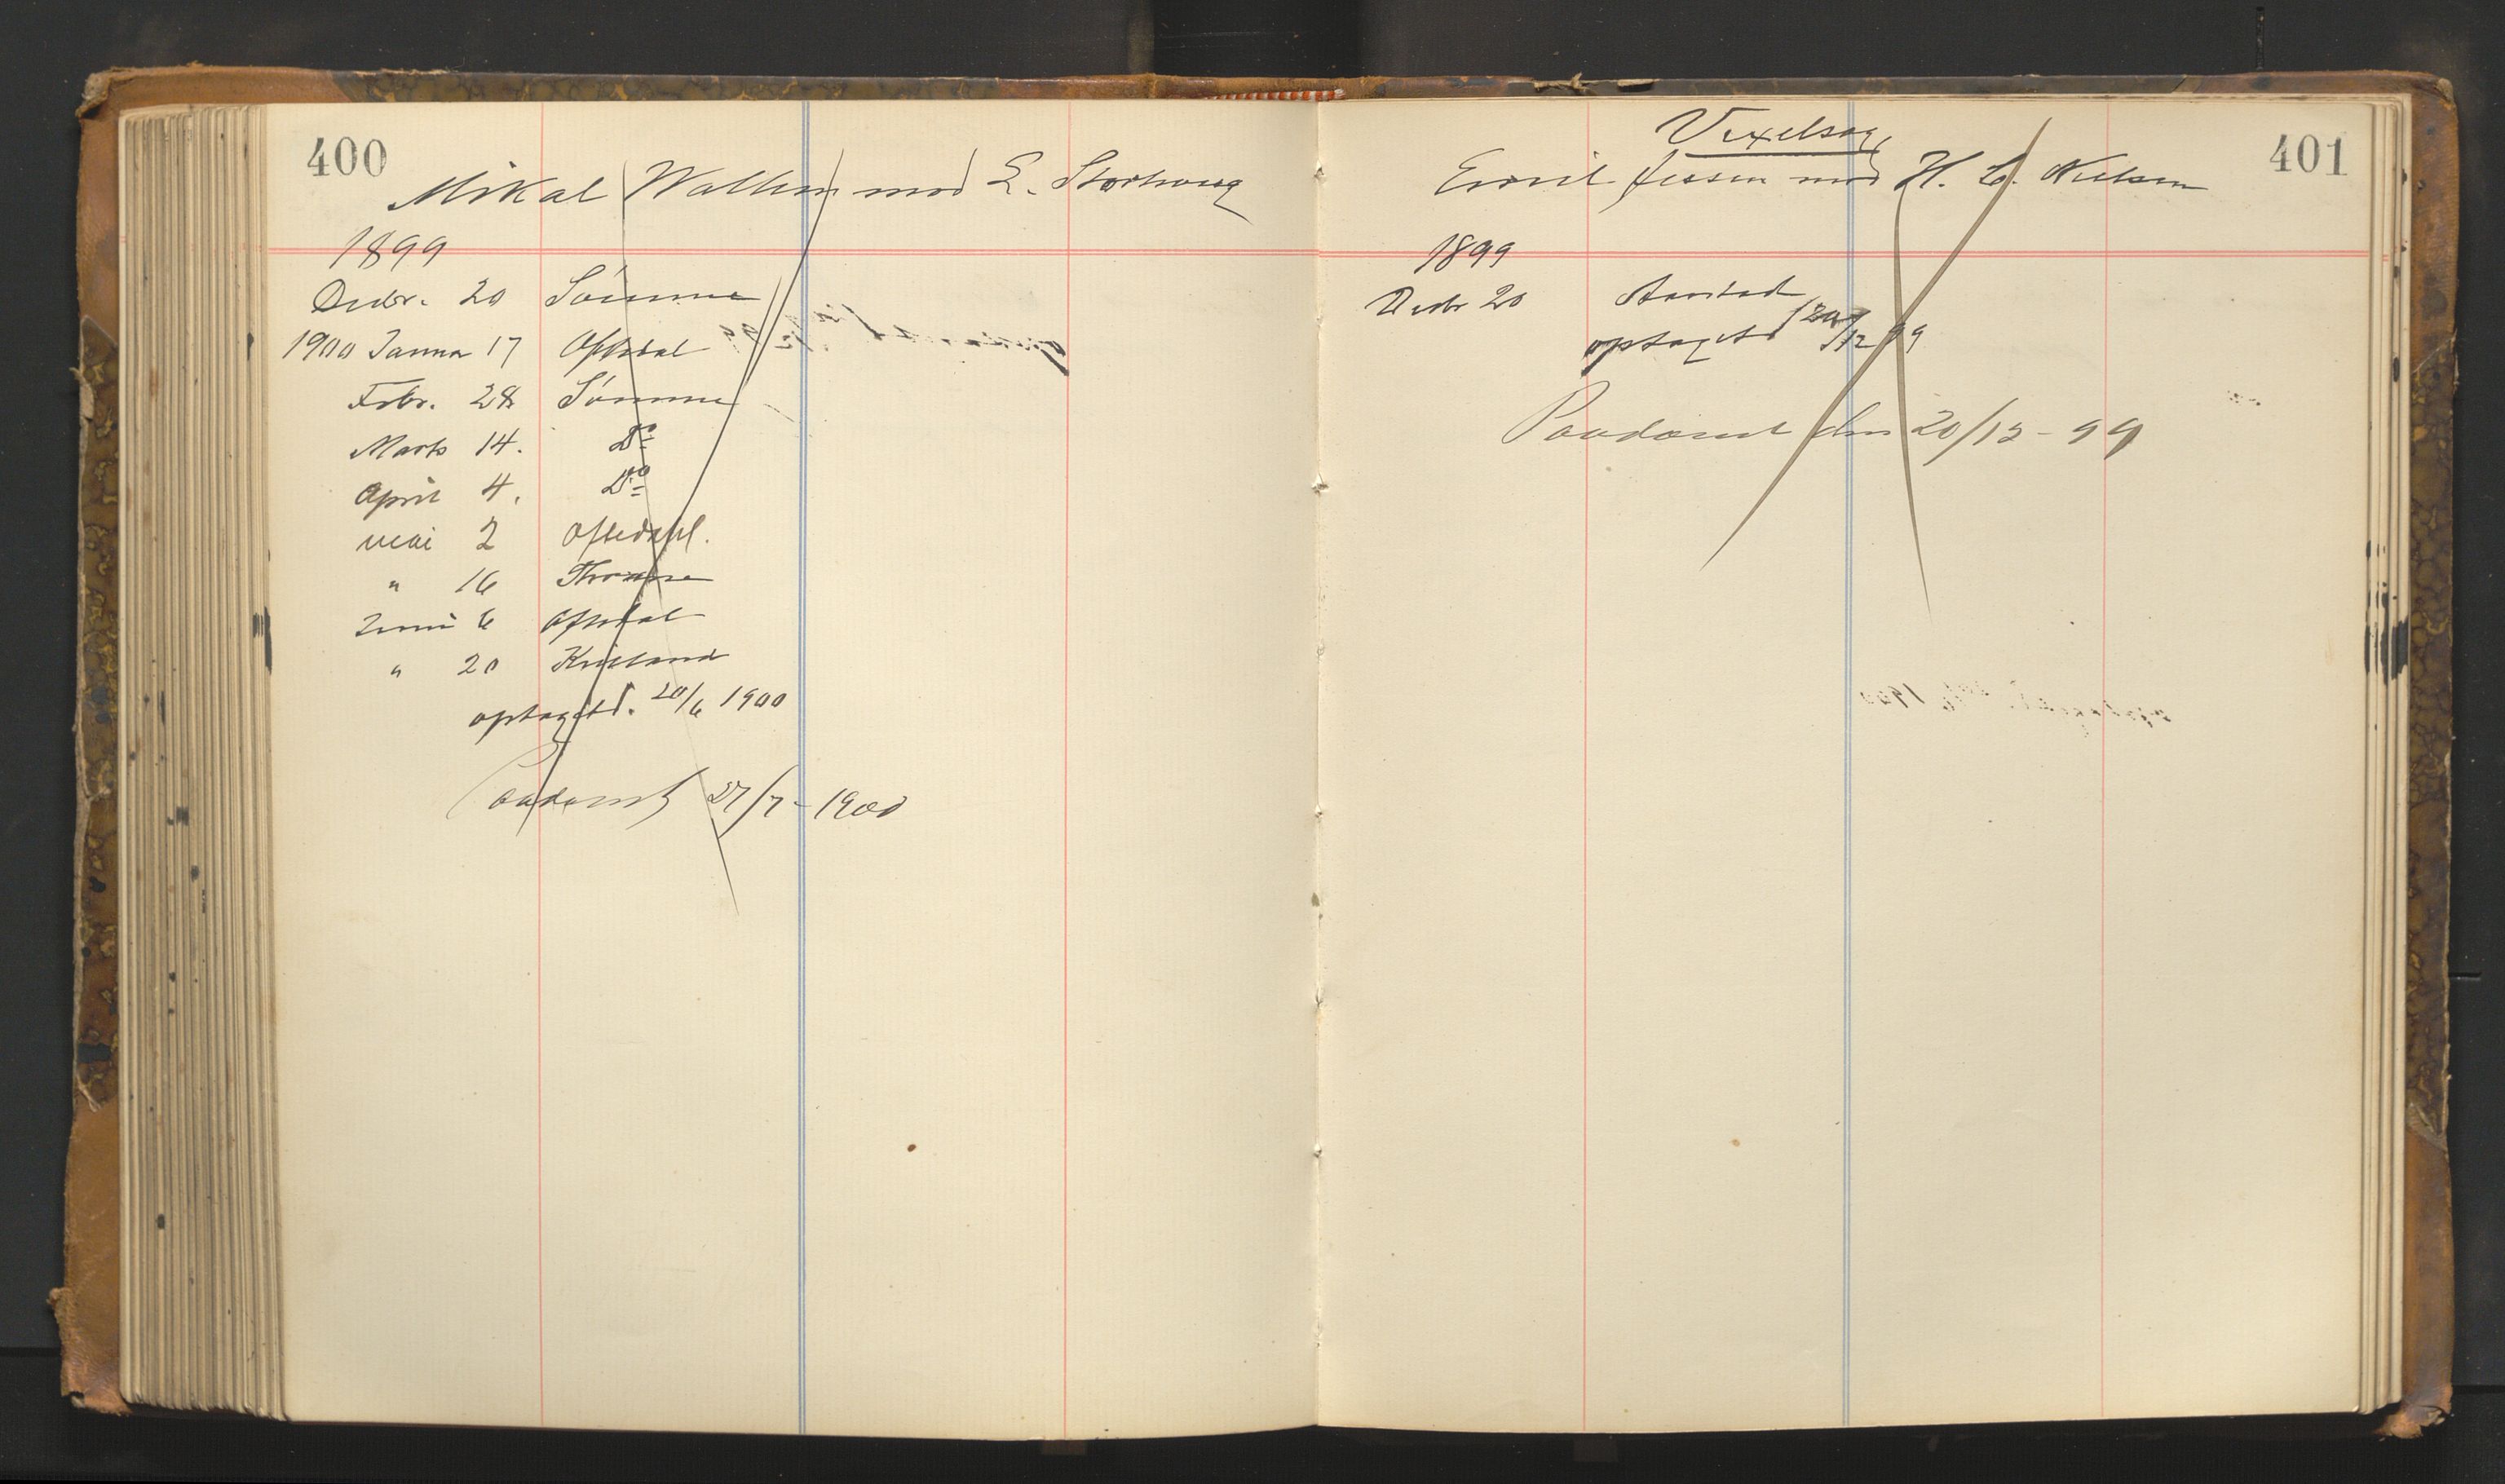 400
Mikal Wallem mod L. Storhoug
1899
Decbr. 20 Sømme
1900 Januar 17 Oftedal
Febr. 28 Sømme
Marts 14. Do
April 4. Do
Mai 2 Oftedahl.
" 16 Thomsen
Juni 6 Oftedal
" 20 Kielland
optaget d. 20/6 1900
Paadømt 27/7 - 1900
401
Vexelsag
Emil Jessen mod H. C. Nielsen
1899
Decbr 20 Aarstad
optaget d 20/12 99
Paadømt den 20/12 - 99